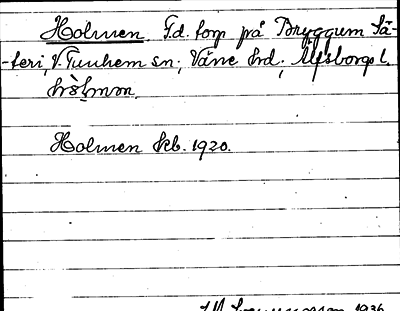 Holmen. F.d. torp på Bryggum Sä-
-teri, V. Tunhem sn; Väne hd; Älfsborgs l.
Holmen kb. 1920.
1936